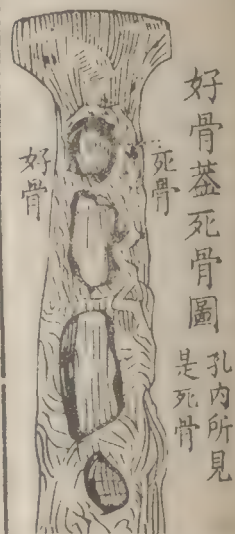 好骨葢死骨圖
孔內所見
是死骨
死骨
好骨